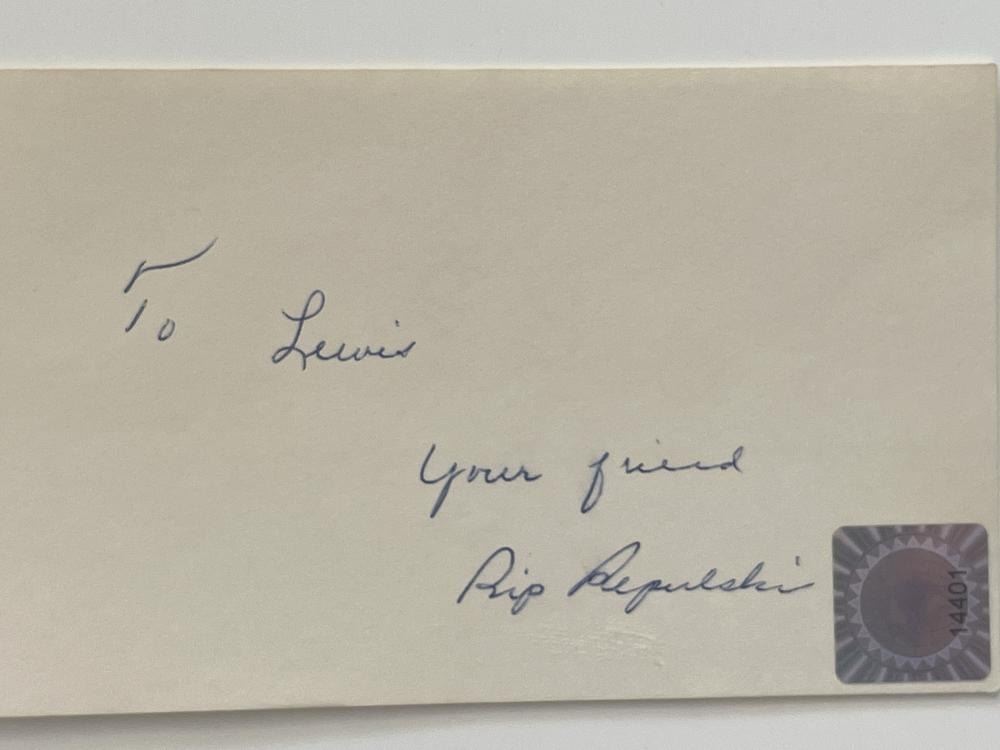 To Lewis
Your friend
Rip Repulski
14401